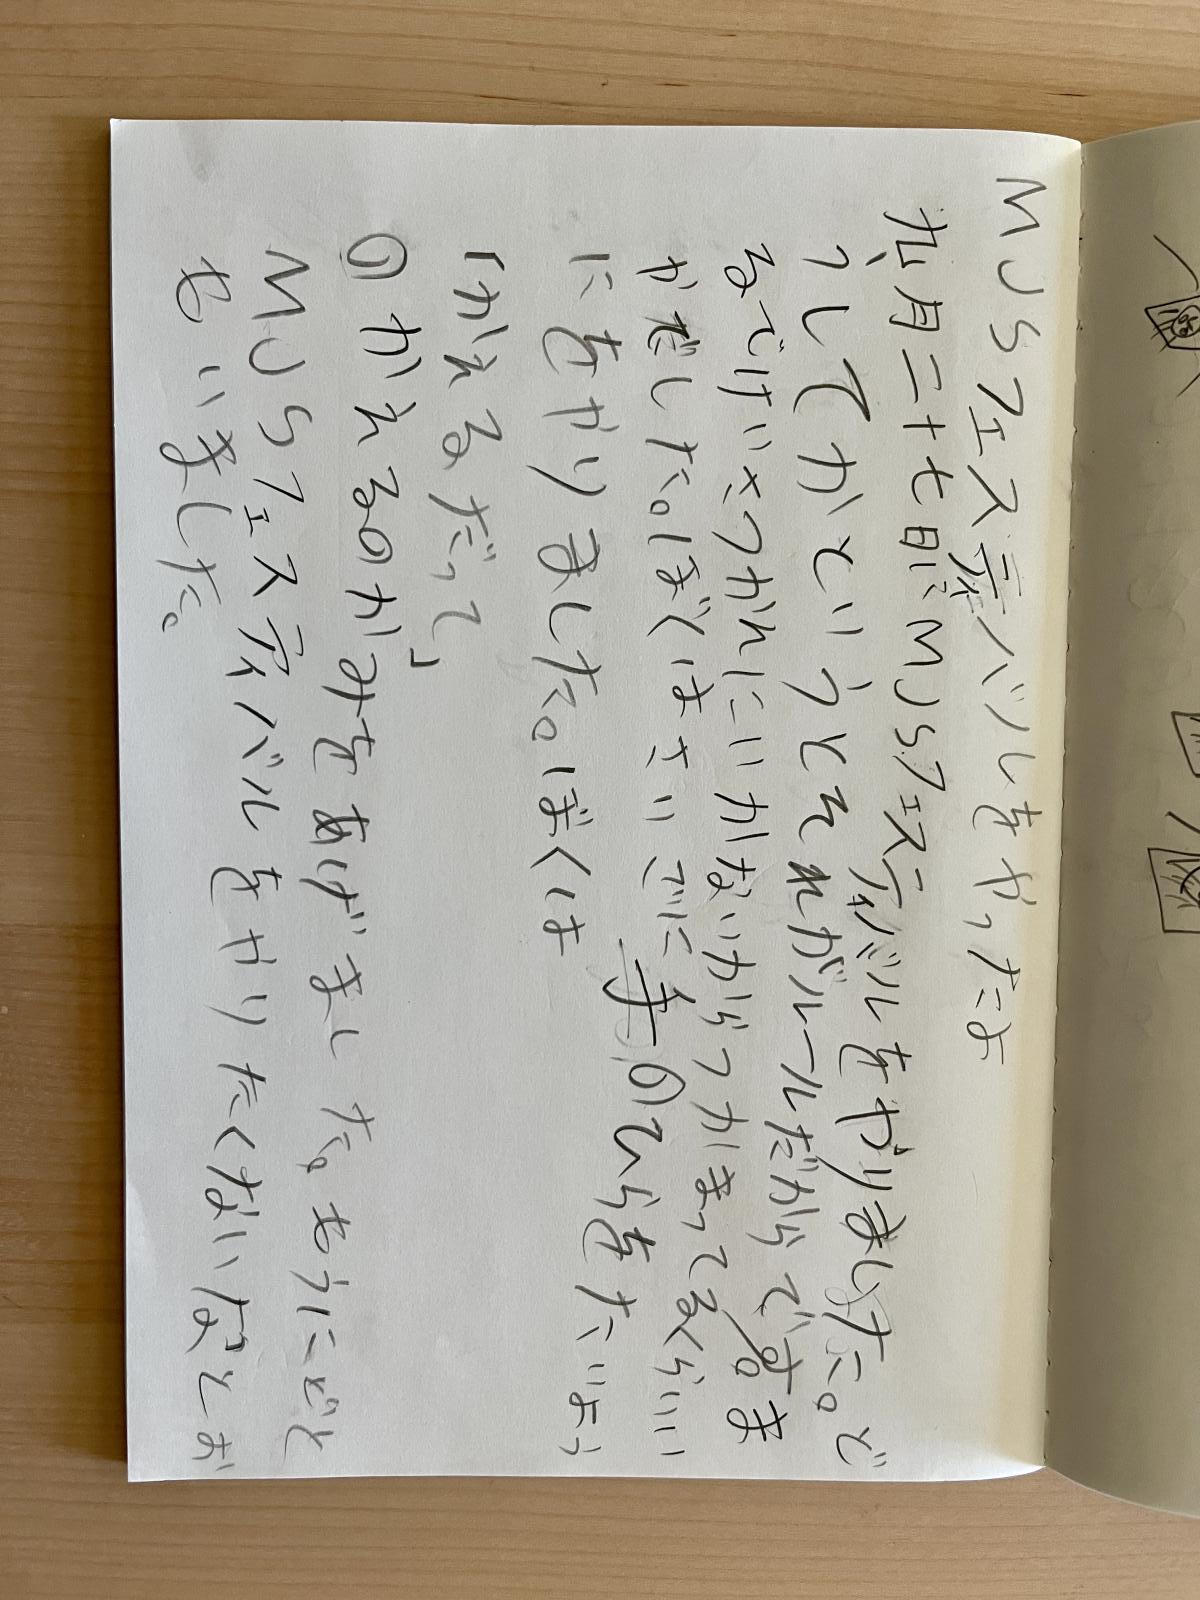 MJSフェスティバルをやったよ
九月二十七日にMJSフェスティバルをやりました。ど
うしてかというとそれがルールだからです。ま
るでけいさつかんにいかないからつかまってるくらいい
かだした。ぼくはさいごに手のひらをたいよう
にをやりました。ぼくは
「かえるだって
のかえるのがみをあげました。もうにどと
MJSフェスティバルをやりたくないなとお
もいました。